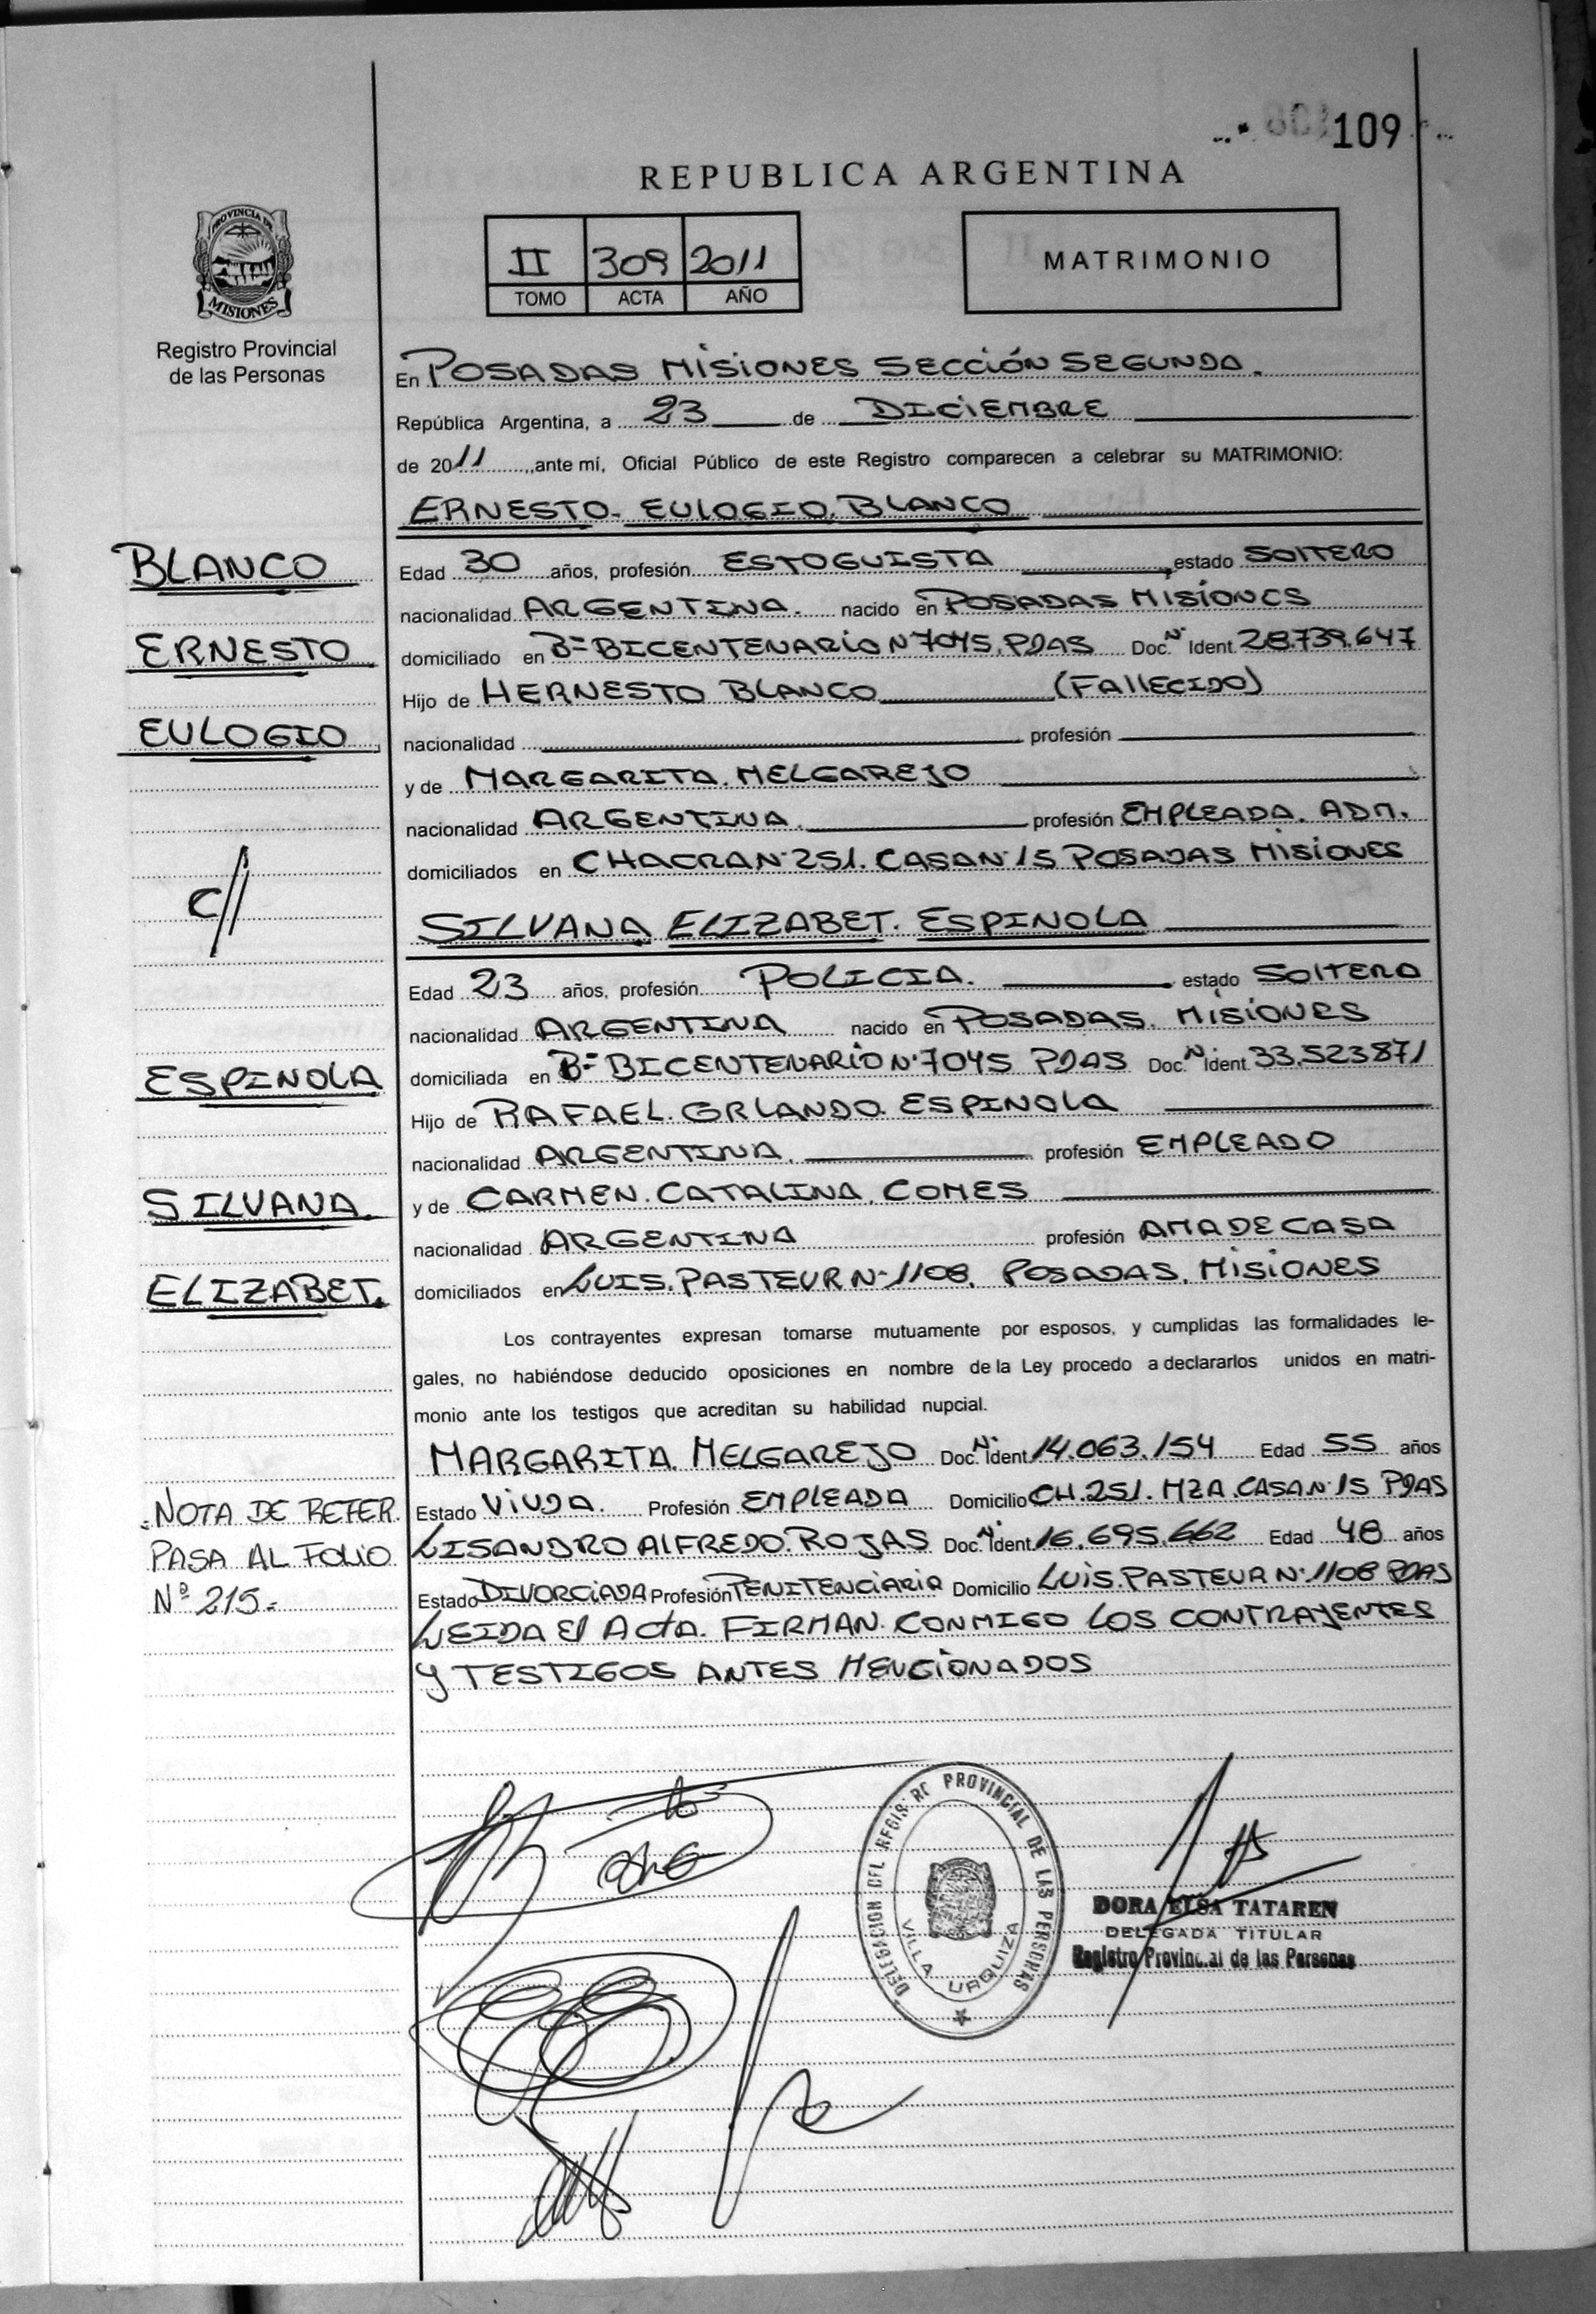 109
REPUBLICA ARGENTINA
PROVINCIA DE
MISIONES
Registro Provincial
de las Personas
II 309 2011
TOMO ACTA AÑO
MATRIMONIO
En POSADAS MISIONES SECCIÓN SEGUNDA.
República Argentina, a 23 de DICIEMBRE
de 2011, ante mí, Oficial Público de este Registro comparecen a celebrar su MATRIMONIO:
ERNESTO EULOGIO BLANCO
BLANCO
ERNESTO
EULOGIO
C//
Edad 30 años, profesión ESTOGUISTA estado SOLTERO
nacionalidad ARGENTINA. nacido en POSADAS MISIONES
domiciliado en Bº BICENTENARIO Nº 7045. PDAS Doc. Nº Ident. 28.739.647
Hijo de HERNESTO BLANCO (FALLECIDO)
nacionalidad profesión
y de MARGARITA MELGAREJO
nacionalidad ARGENTINA. profesión EMPLEADA. ADM.
domiciliados en CHACRA Nº 251. CASA Nº 15 POSADAS MISIONES
SILVANA ELIZABET. ESPINOLA
ESPINOLA
SILVANA
ELIZABET.
Edad 23 años, profesión POLICIA. estado SOLTERA
nacionalidad ARGENTINA nacido en POSADAS. MISIONES
domiciliada en Bº BICENTENARIO Nº 7045 PDAS Doc. Nº Ident. 33.523871
Hijo de RAFAEL ORLANDO ESPINOLA
nacionalidad ARGENTINA. profesión EMPLEADO
y de CARMEN. CATALINA. COMES
nacionalidad ARGENTINA profesión AMA DE CASA
domiciliados en LUIS. PASTEUR Nº 1108. POSADAS. MISIONES
Los contrayentes expresan tomarse mutuamente por esposos, y cumplidas las formalidades le-
gales, no habiéndose deducido oposiciones en nombre de la Ley procedo a declararlos unidos en matri-
monio ante los testigos que acreditan su habilidad nupcial.
MARGARITA MELGAREJO Doc. Nº Ident 14.063.154 Edad 55 años
Estado VIUDA. Profesión EMPLEADA Domicilio CH. 251. MZA. CASA Nº 15 PDAS
LISANDRO ALFREDO. ROJAS Doc. Nº Ident 16.695.662 Edad 48 años
Estado DIVORCIADA Profesión PENITENCIARIA Domicilio LUIS. PASTEUR Nº 1108 PDAS
LEIDA El ACTA. FIRMAN. CONMIGO LOS CONTRAYENTES
Y TESTIGOS ANTES MENCIONADOS
NOTA DE REFER.
PASA AL FOLIO
Nº 215.-
DELEGACION DEL REGISTRO PROVINCIAL DE LAS PERSONAS
VILLA URQUIZA
DORA ELSA TATAREN
DELEGADA TITULAR
Registro Provincial de las Personas